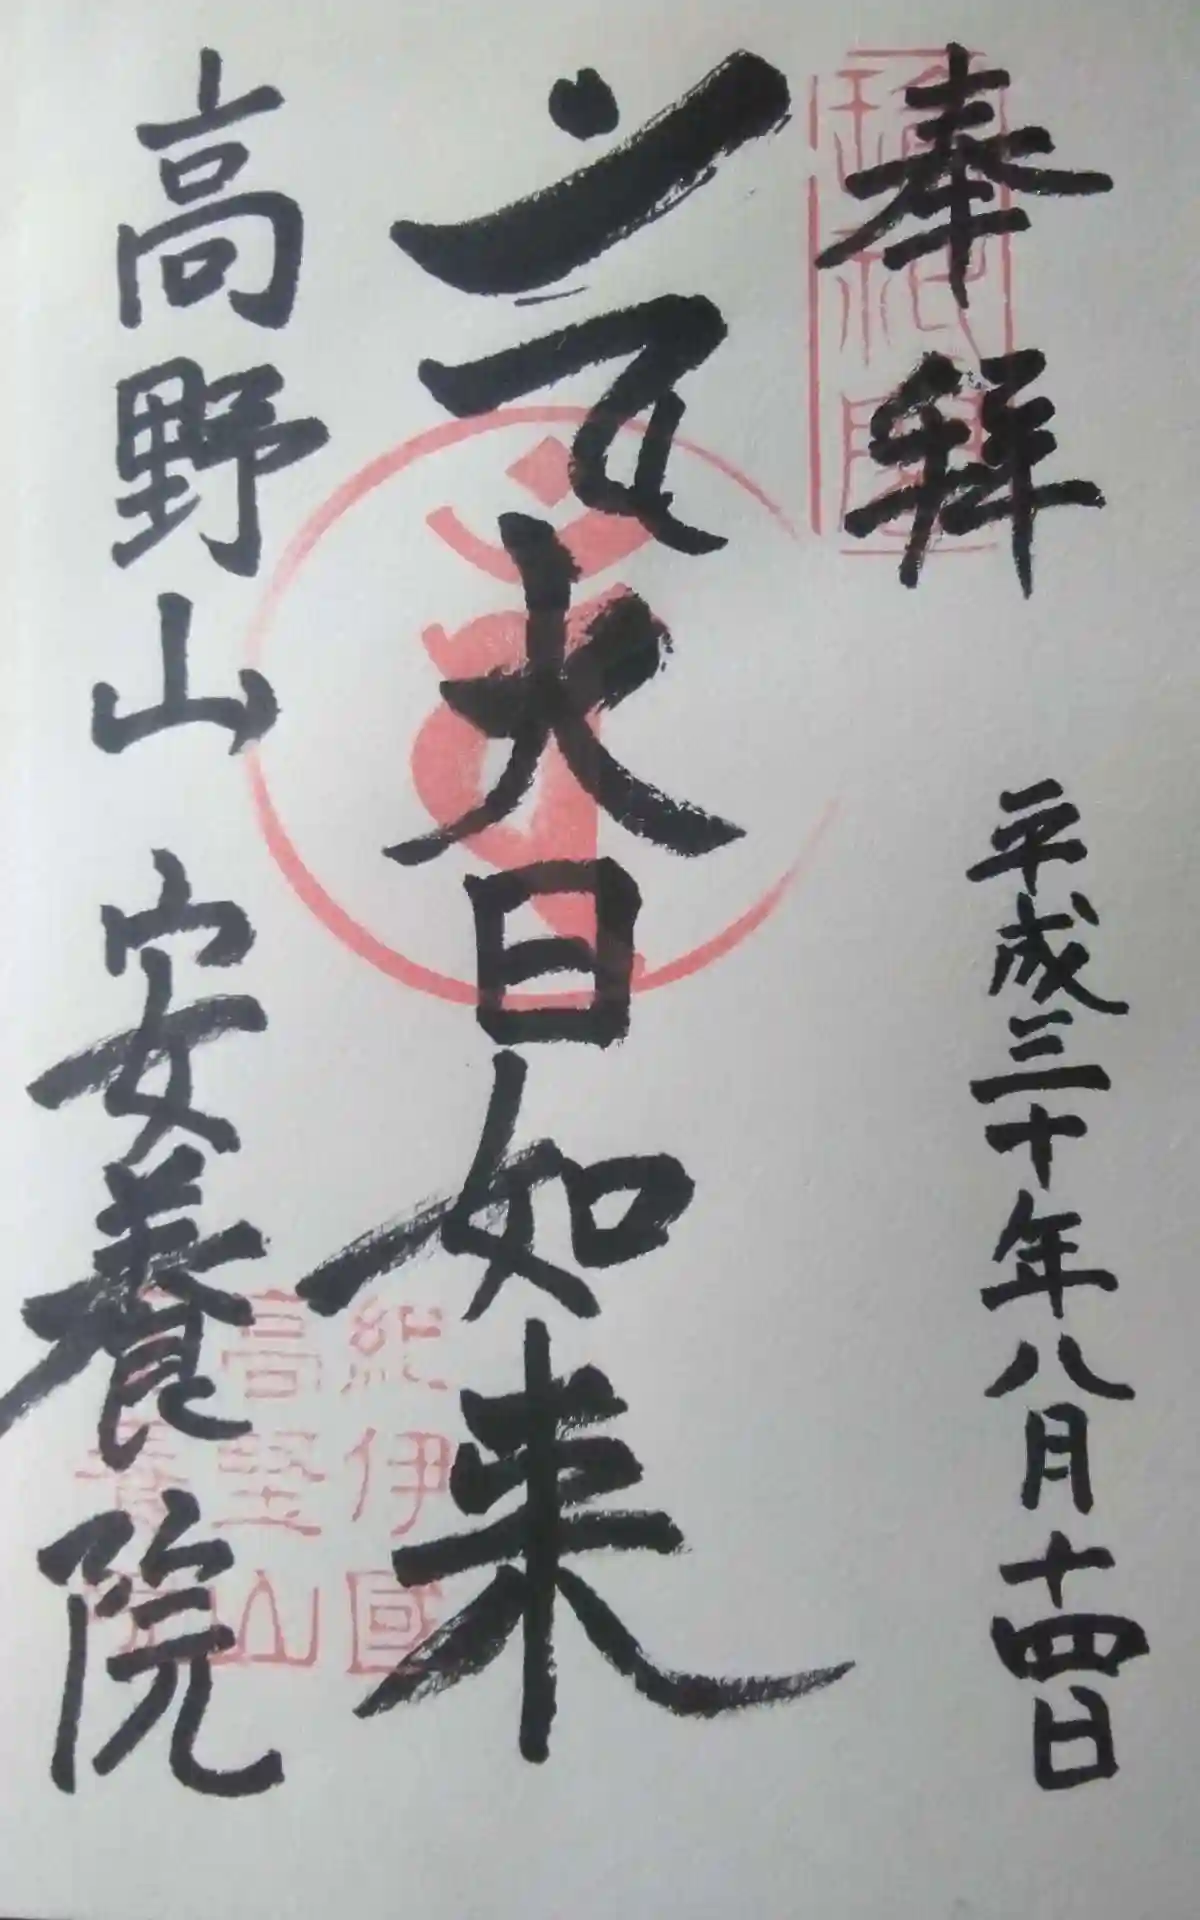 奉拝
平成三十年八月十四日
大日如来
高野山 安養院
紀伊國
高埜山